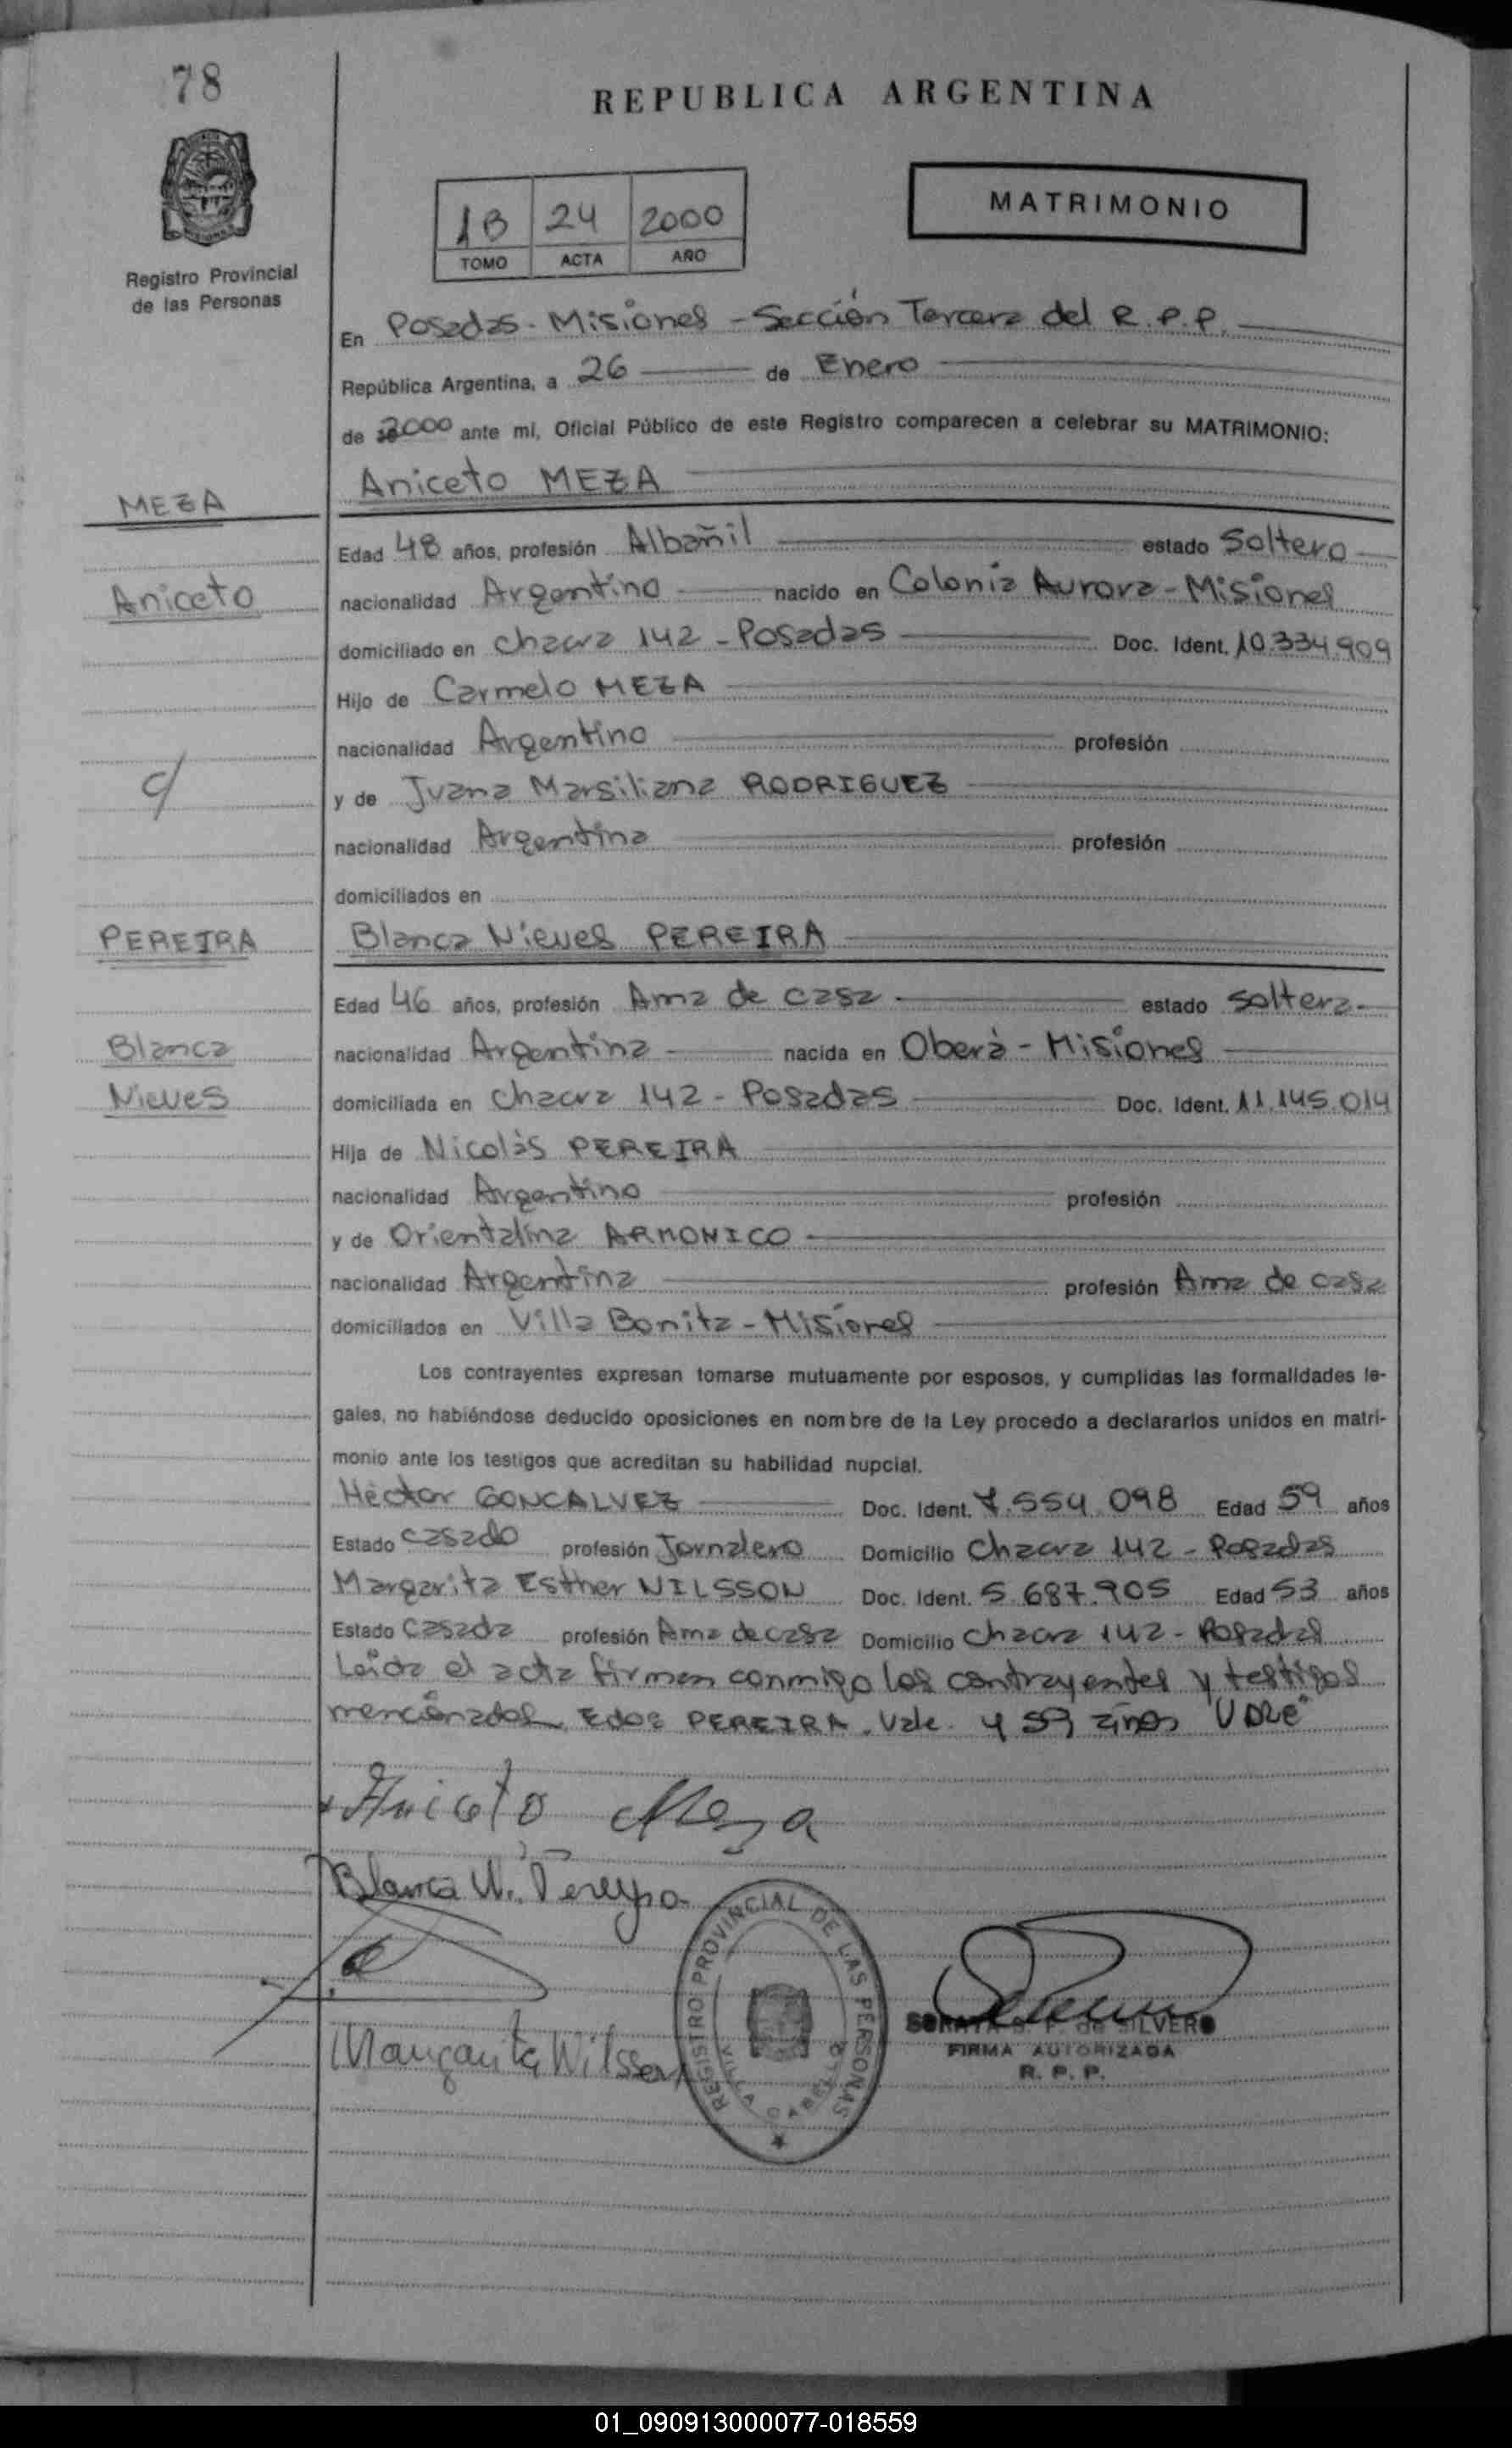 78
REPUBLICA ARGENTINA
1B 24 2000
TOMO ACTA AÑO
MATRIMONIO
Registro Provincial
de las Personas
En Posadas - Misiones - Sección Tercera del R.P.P.
República Argentina, a 26 de Enero
de 2000 ante mi, Oficial Público de este Registro comparecen a celebrar su MATRIMONIO:
MEZA
Aniceto MEZA
Edad 48 años, profesión Albañil estado Soltero
Aniceto
nacionalidad Argentino nacido en Colonia Aurora - Misiones
domiciliado en Chacra 142 - Posadas Doc. Ident. 10.334.909
Hijo de Carmelo MEZA
nacionalidad Argentino profesión
c/
y de Juana Marsiliana RODRIGUEZ
nacionalidad Argentina profesión
domiciliados en
PEREIRA
Blanca Nieves PEREIRA
Edad 46 años, profesión Ama de casa estado Soltera
Blanca
nacionalidad Argentina nacida en Oberá - Misiones
Nieves
domiciliada en Chacra 142 - Posadas Doc. Ident. 11.145.014
Hija de Nicolás PEREIRA
nacionalidad Argentino profesión
y de Orientalina ARMONICO
nacionalidad Argentina profesión Ama de casa
domiciliados en Villa Bonita - Misiones
Los contrayentes expresan tomarse mutuamente por esposos, y cumplidas las formalidades le-
gales, no habiéndose deducido oposiciones en nombre de la Ley procedo a declararlos unidos en matri-
monio ante los testigos que acreditan su habilidad nupcial.
Héctor GONCALVEZ Doc. Ident. 7.554.098 Edad 59 años
Estado Casado profesión Jornalero Domicilio Chacra 142 - Posadas
Margarita Esther NILSSON Doc. Ident. 5.687.905 Edad 53 años
Estado Casada profesión Ama de casa Domicilio Chacra 142 - Posadas
Leída el acta firman conmigo los contrayentes y testigos
mencionados. Edos PEREIRA. Vale. y 59 años "Vale"
Aniceto Meza
Blanca N. Pereyra
Margarita Nilsson
REGISTRO PROVINCIAL DE LAS PERSONAS
VILLA CABELLO
de SILVERO
FIRMA AUTORIZADA
R. P. P.
01_090913000077-018559